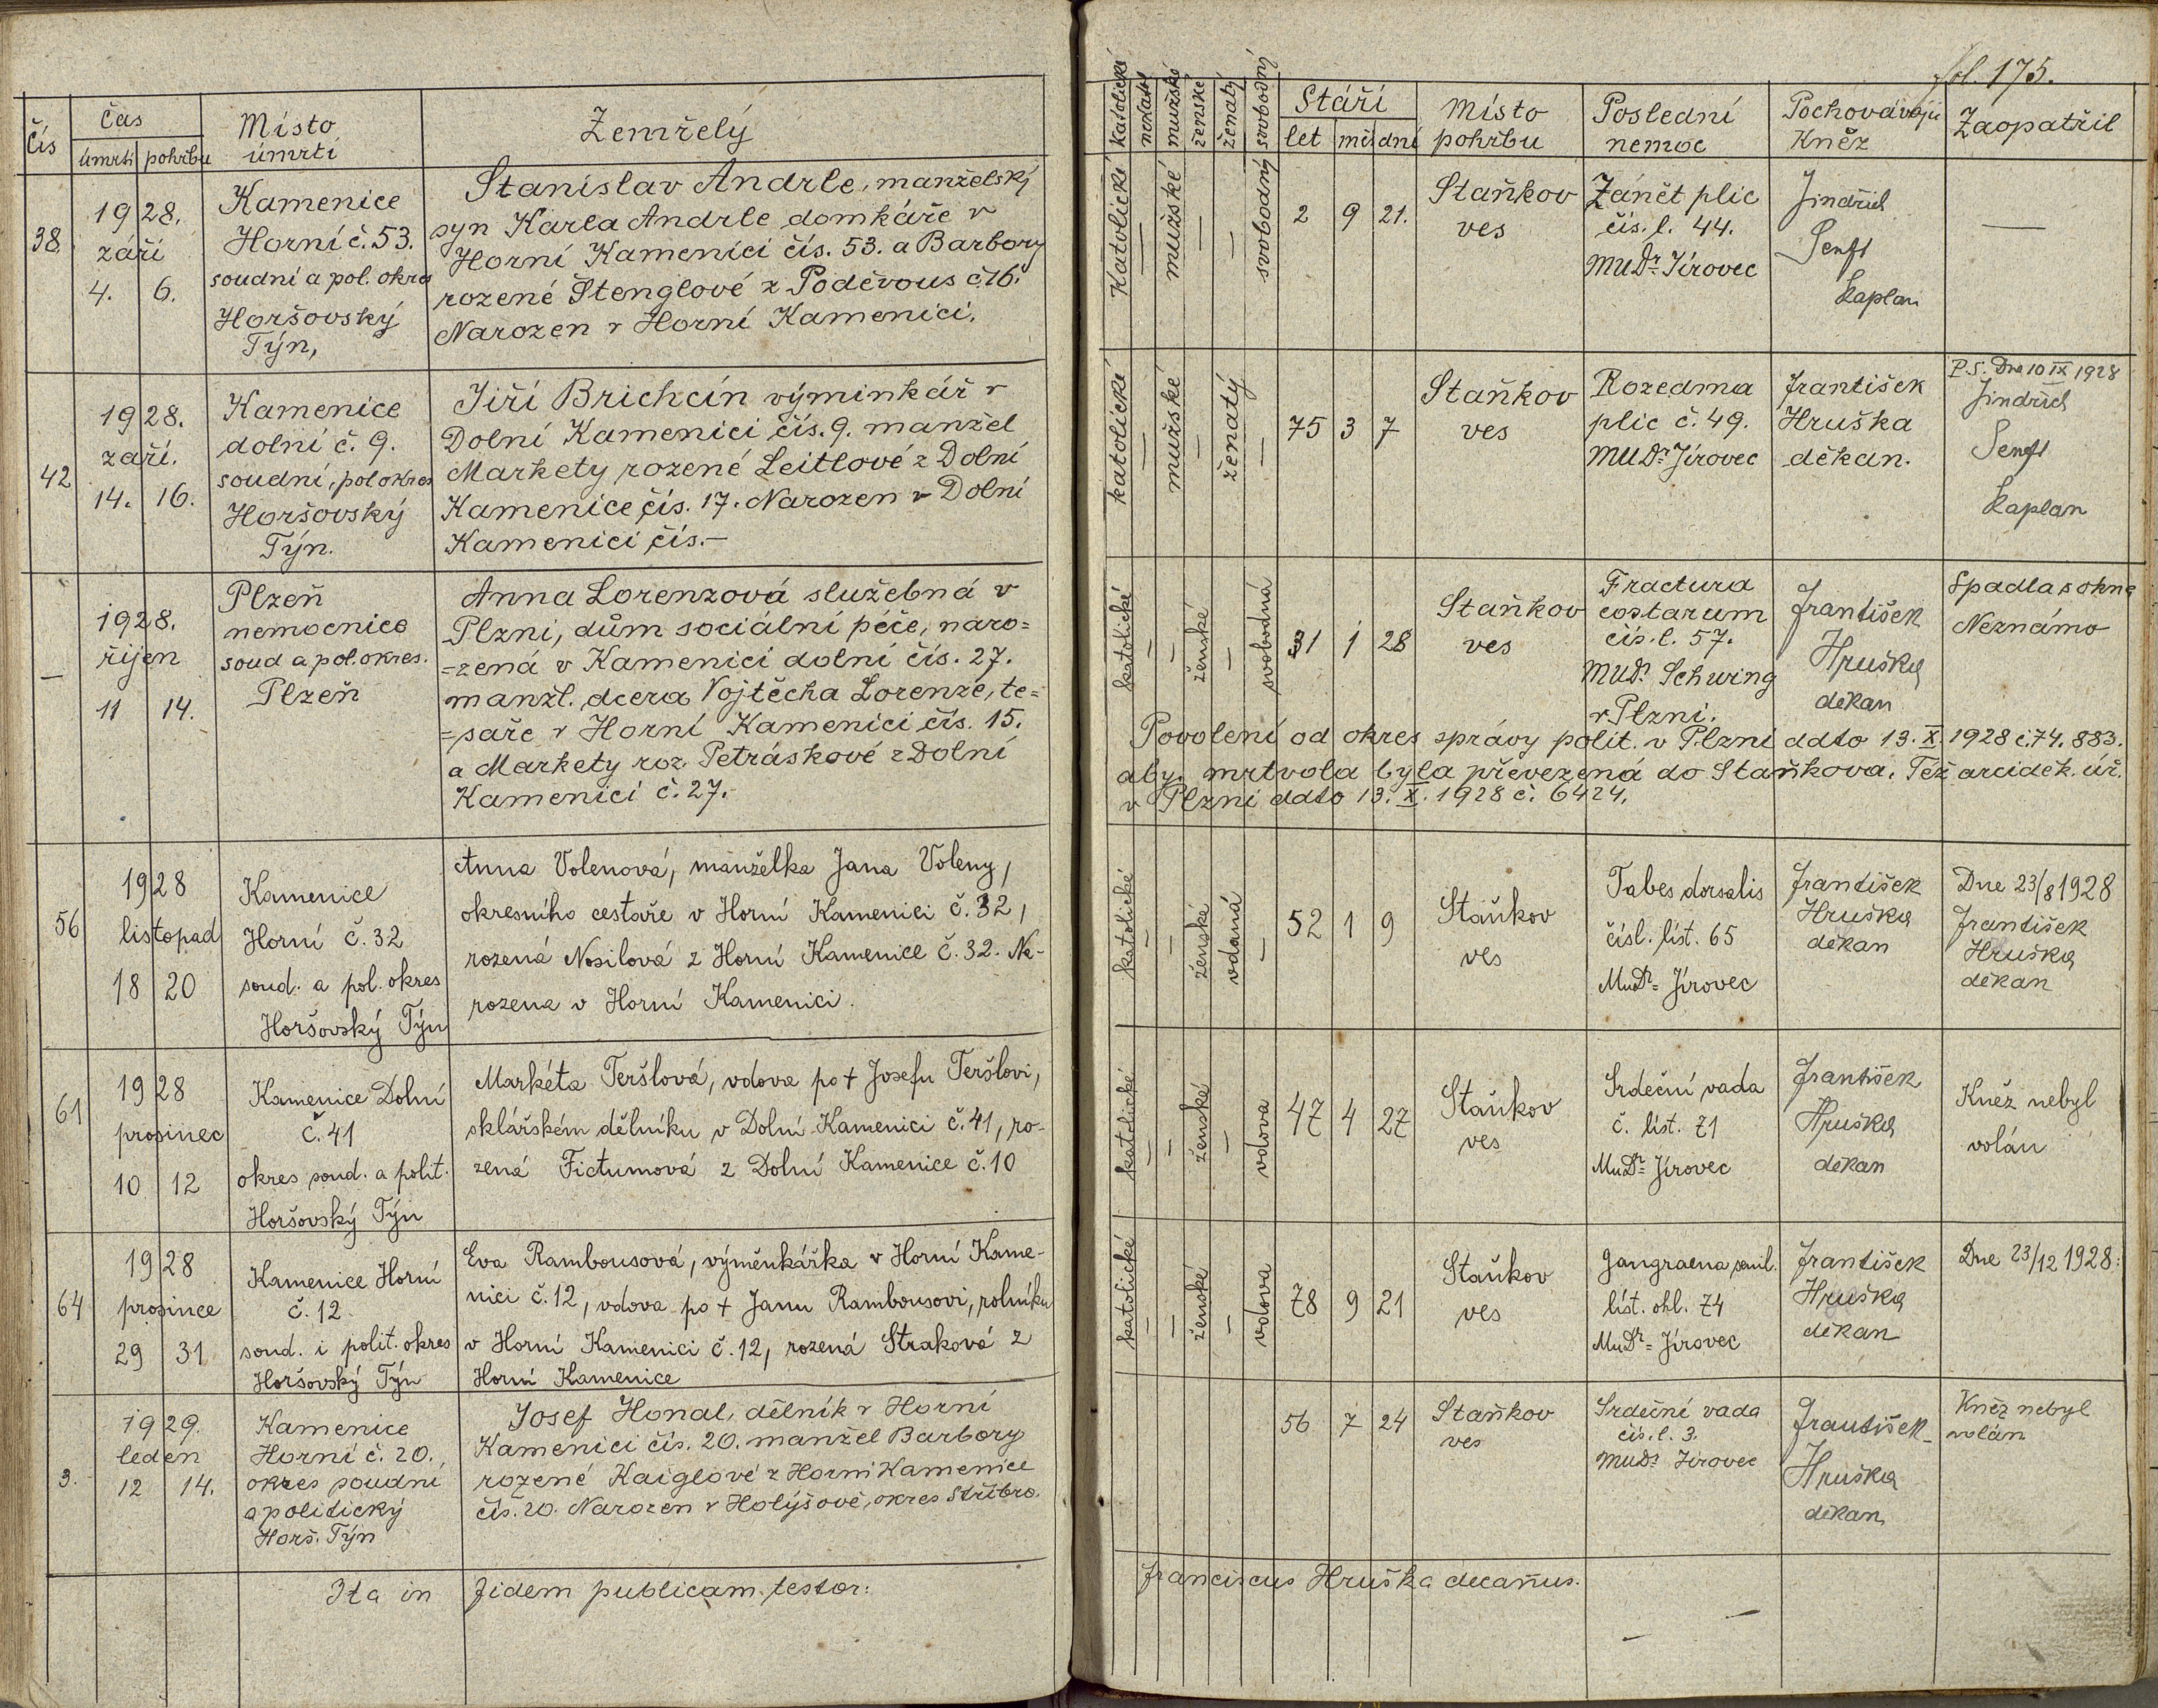 fol. 175.
Čís
Čas
úmrtí pohřbu
Místo
úmrtí
Zemřelý
katolické
mužské
ženské
ženatý
svobodný
Stáří
let měs dní
Místo
pohřbu
Poslední
nemoc
Pochovávající
Kněz
Zaopatřil
38.
1928.
září
4. 6.
Kamenice
Horní č. 53.
soudní a pol. okres
Horšovský
Týn,
Stanislav Andrle, manželský
syn Karla Andrle domkáře v
Horní Kamenici čís. 53. a Barbory
rozené Štenglové z Poděvous č 16.
Narozen v Horní Kamenici.
Katolické
—
mužské
—
—
svobodný
2 9 21.
Staňkov
ves
Zánět plic
čís. l. 44.
MUDr. Jírovec
Jindřich
Senft
kaplan
—
42
1928.
září.
14. 16.
Kamenice
dolní č. 9.
soudní, pol okres
Horšovský
Týn.
Jiří Brichcín výminkář v
Dolní Kamenici čís. 9. manžel
Markety rozené Leitlové z Dolní
Kamenice čís. 17. Narozen v Dolní
Kamenici čís.—
katolické
—
mužské
—
ženatý
—
75 3 7
Staňkov
ves
Rozedma
plic č. 49.
MUDr. Jírovec
František
Hruška
děkan.
P.S. Dne 10 IX 1928
Jindřich
Senft
kaplan
—
1928.
říjen
11 14.
Plzeň
nemocnice
soud a pol. okres.
Plzeň
Anna Lorenzová služebná v
Plzni, dům sociální péče, naro=
=zená v Kamenici dolní čís. 27.
manžl. dcera Vojtěcha Lorenze, te=
=saře v Horní Kamenici čís. 15.
a Markety roz. Petráskové z Dolní
Kamenici č. 27.
katolické
—
—
ženské
—
svobodná
31 1 28
Staňkov
ves
Fractura
costarum
čís. l. 57.
MUDr. Schwing
v Plzni.
František
Hruška
děkan
Spadla s okna
Neznámo
Povolení od okres správy polit. v Plzni ddto 13. X. 1928 č. 74. 883.
aby mrtvola byla převezená do Staňkova. Též arciděk. úř.
v Plzni ddto 13. X. 1928 č. 6424.
56
1928
listopad
18 20
Kamenice
Horní č. 32
soud. a pol. okres
Horšovský Týn
Anna Volenová, manželka Jana Voleny,
okresního cestáře v Horní Kamenici č. 32,
rozená Nosilová z Horní Kamenice č. 32. Na-
rozena v Horní Kamenici.
katolické
—
—
ženské
vdaná
—
52 1 9
Staňkov
ves
Tabes dorsalis
čísl. líst. 65
MuDr= Jírovec
František
Hruška
děkan
Dne 23/8 1928
František
Hruška
děkan
61
1928
prosinec
10 12
Kamenice Dolní
č. 41
okres soud. a polit.
Horšovský Týn
Markéta Teršlová, vdova po † Josefu Teršlovi,
sklářském dělníku v Dolní Kamenici č. 41, ro-
zená Fictumová z Dolní Kamenice č. 10
katolické
—
—
ženské
—
vdova
47 4 27
Staňkov
ves
Srdeční vada
č. líst. 71
MuDr= Jírovec
František
Hruška
děkan
Kněz nebyl
volán
64
1928
prosince
29 31
Kamenice Horní
č. 12
soud. i polit. okres
Horšovský Týn
Eva Rambousová, výměnkářka v Horní Kame-
nici č. 12, vdova po † Janu Rambousovi, rolníku
v Horní Kamenici č. 12, rozená Straková z
Horní Kamenice
katolické
—
—
ženské
—
vdova
78 9 21
Staňkov
ves
Gangraena senil.
líst. ohl. 74
MuDr= Jírovec
František
Hruška
děkan
Dne 23/12 1928:
3.
1929.
leden
12 14.
Kamenice
Horní č. 20.
okres soudní
a politický
Horš. Týn
Josef Honal, dělník v Horní
Kamenici čís. 20. manžel Barbory
rozené Kaiglové z Horní Kamenice
čís. 20. Narozen v Holýšově, okres Stříbro.
56 7 24
Staňkov
ves
Srdeční vada
čís. l. 3.
MUDr. Jírovec
František
Hruška
děkan
Kněz nebyl
volán
Ita in fidem publicam testor:
Franciscus Hruška decanus.